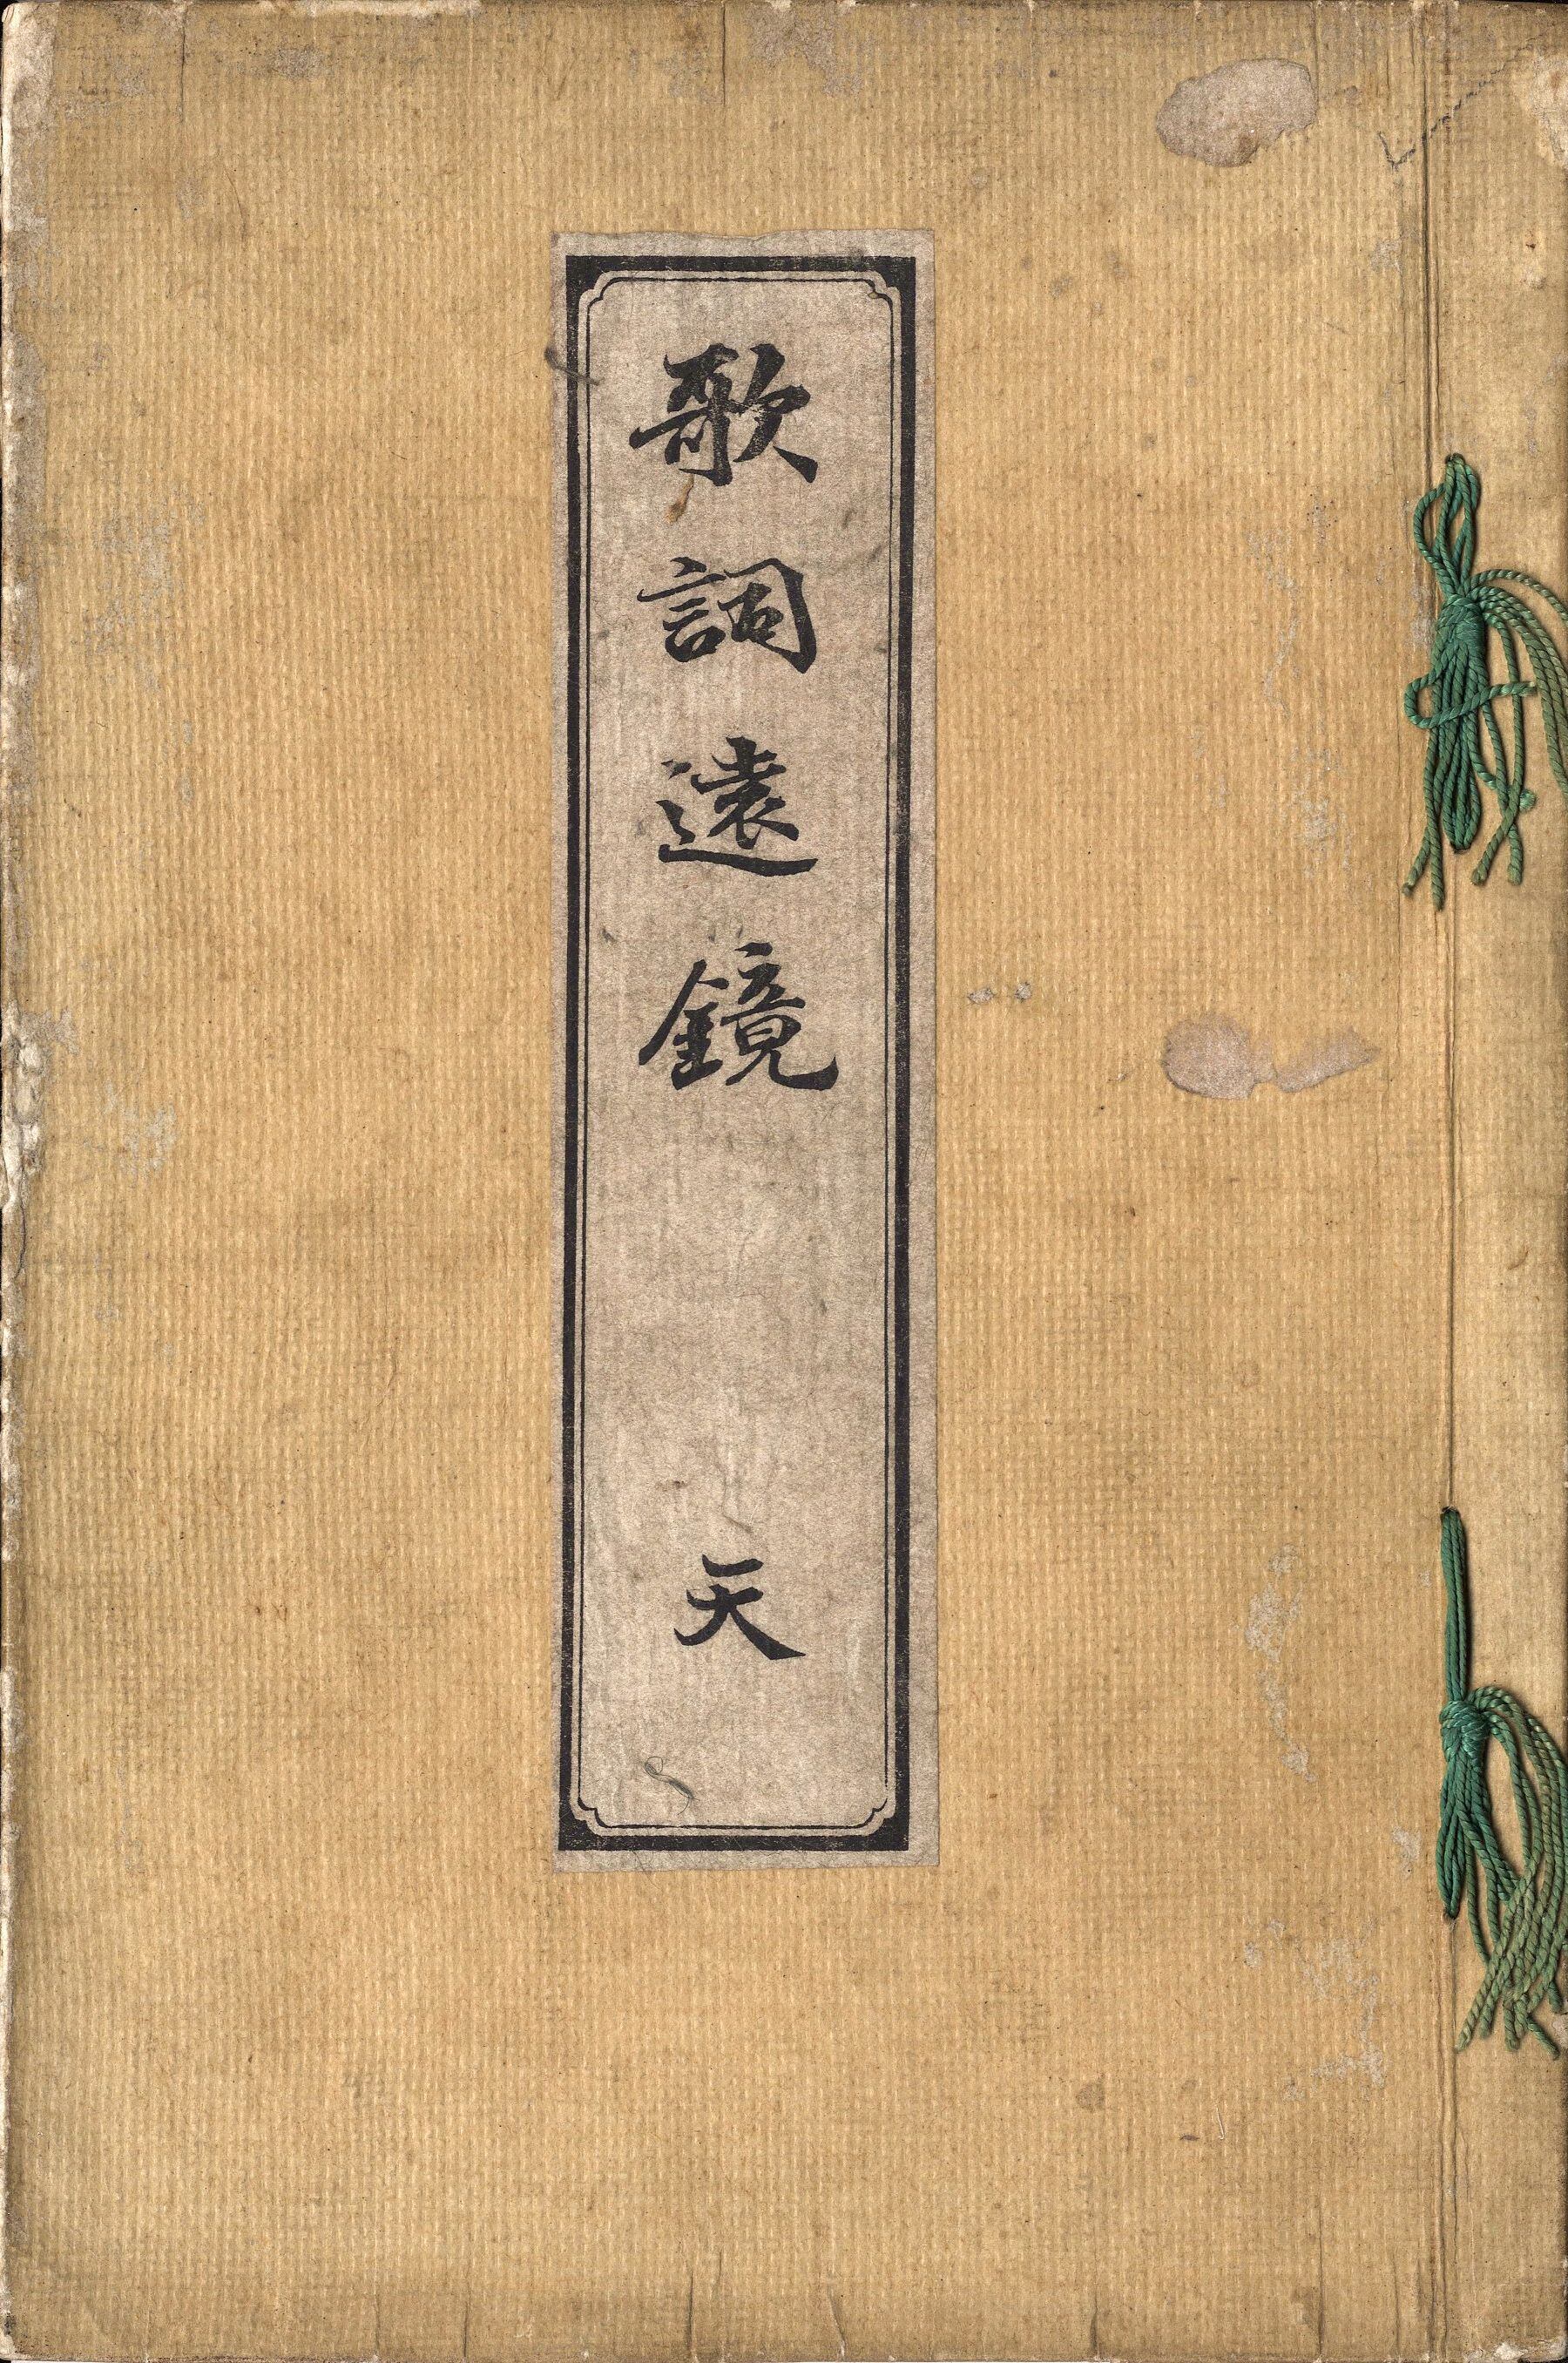 歌詞遠鏡 天